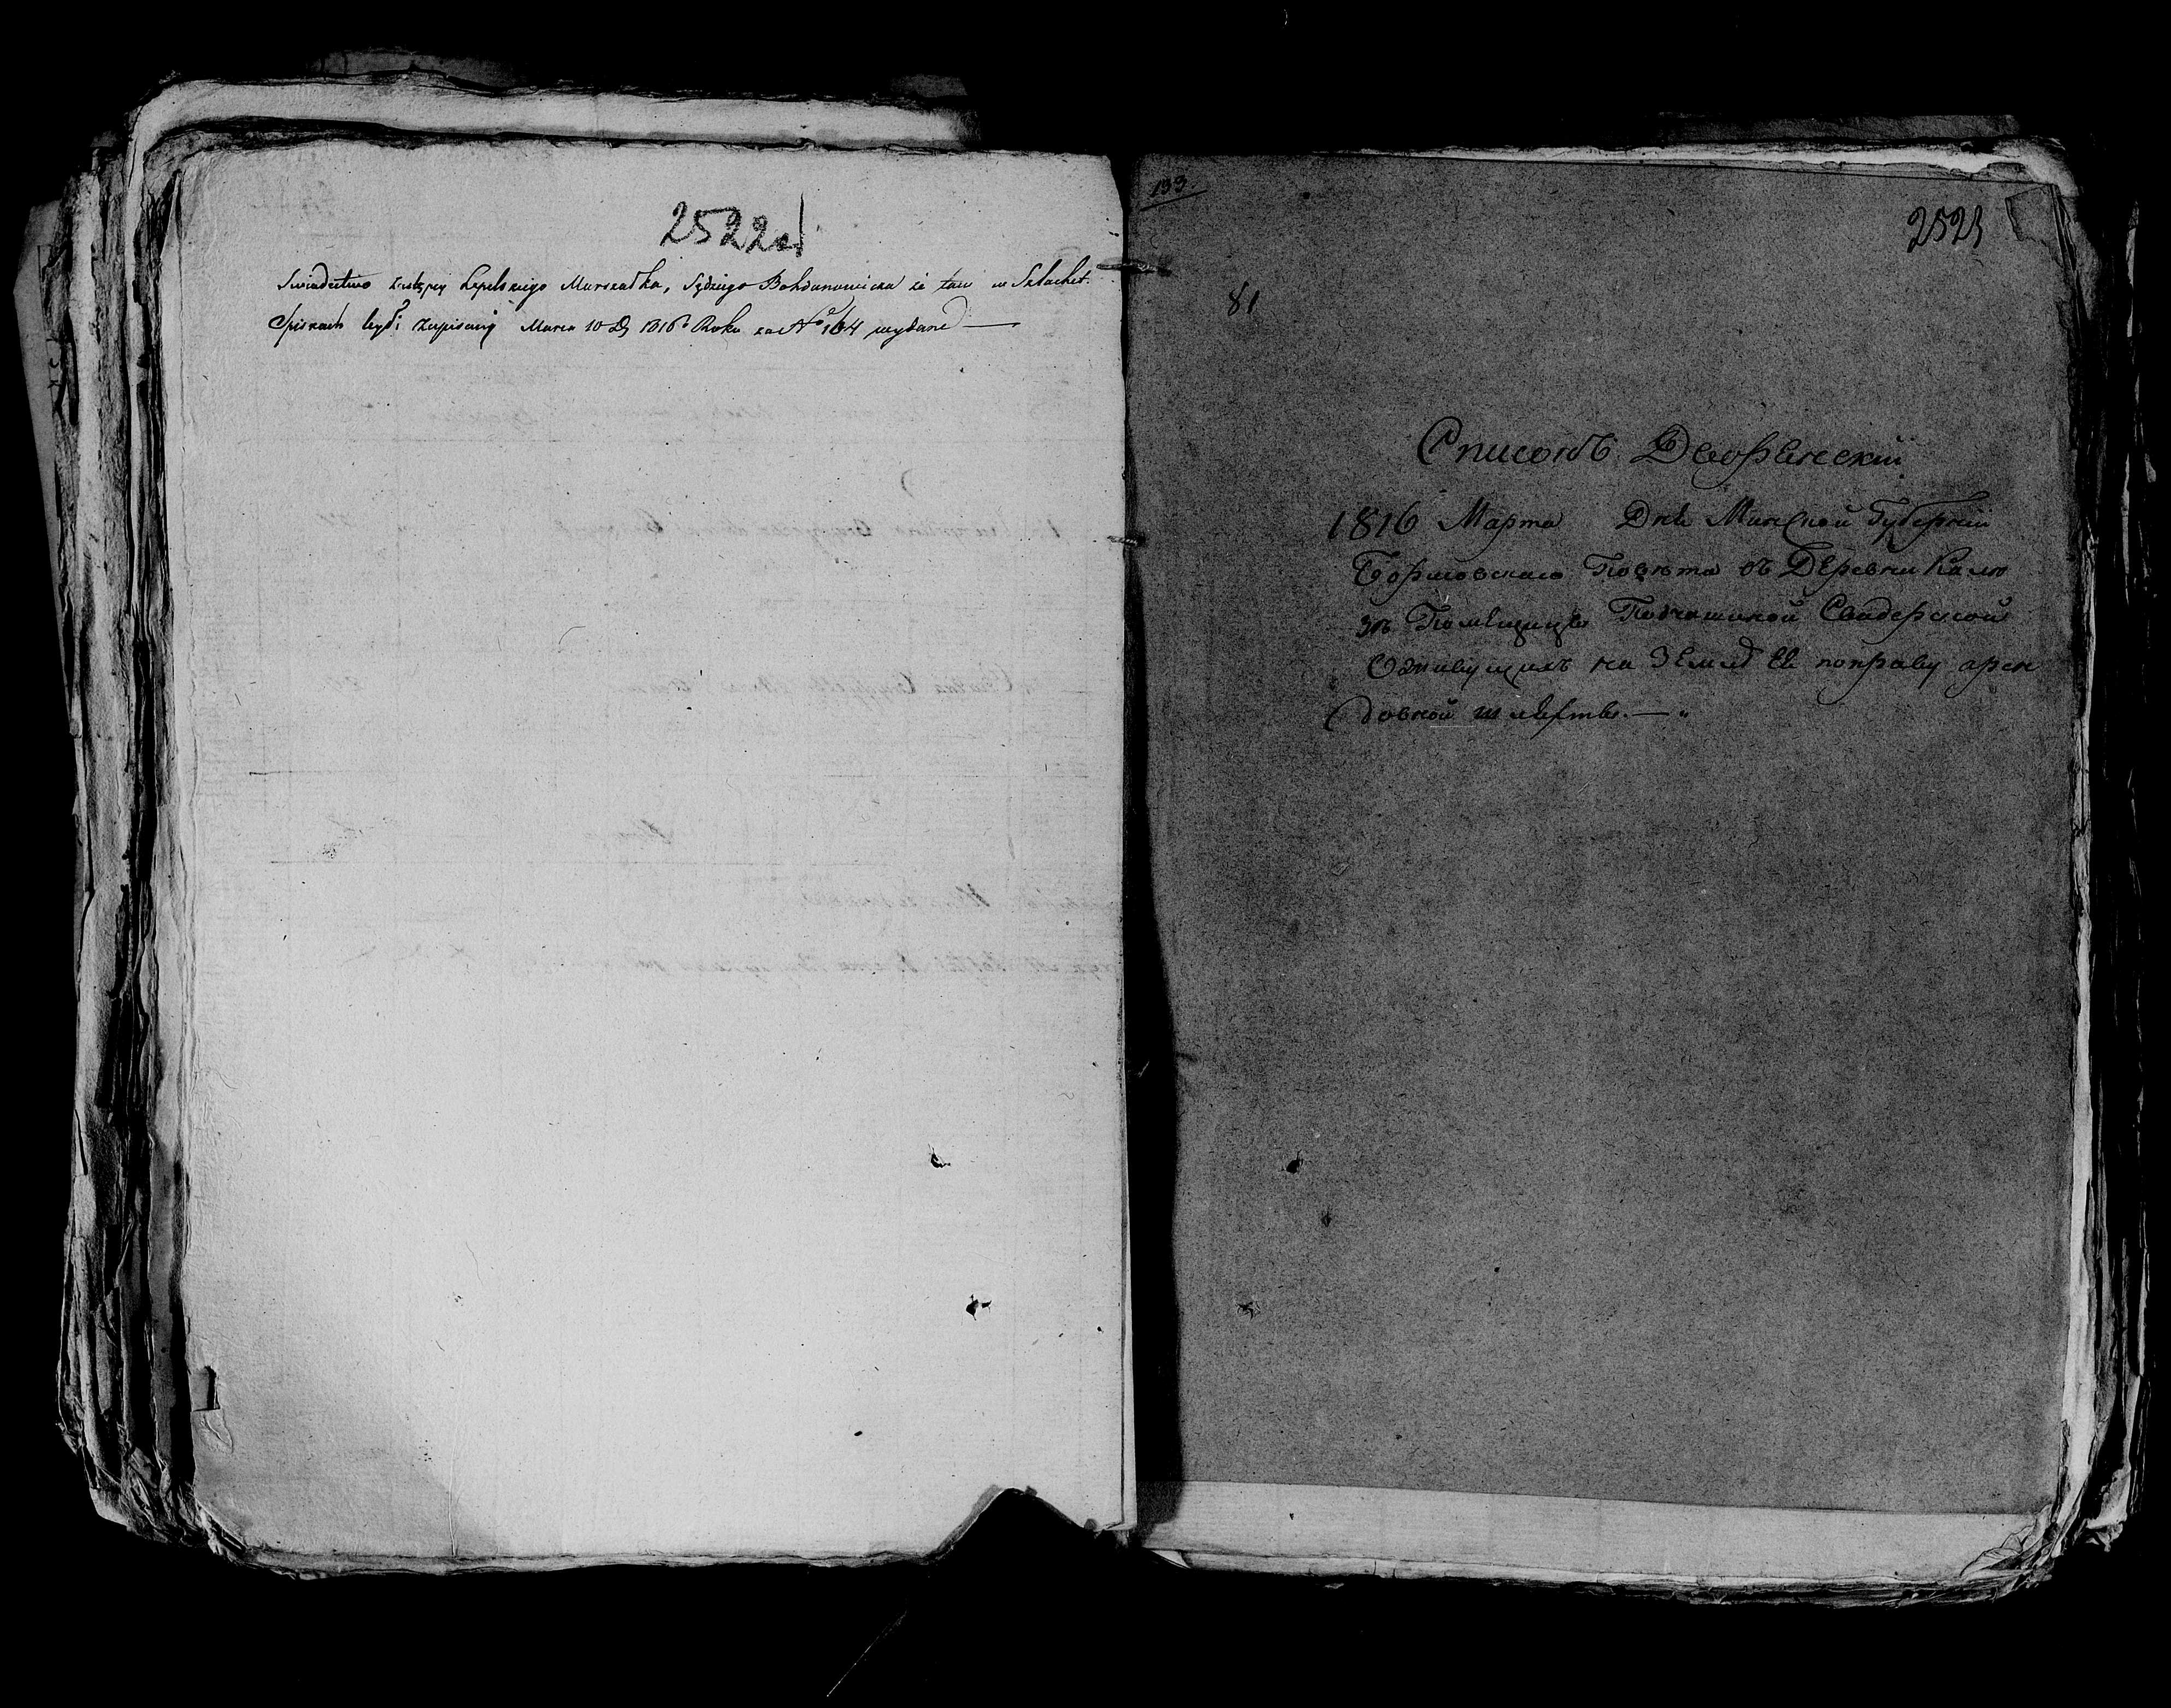 2522об
Swiadectwo zastępcy Lepelskiego Marszałka, Sędziego Bohdanowicza że tam w Szlachet.
Spisach był zapisany Marca 10 D 1816 Roku za No 164 wydane —
133.
2523
81
Списокъ Дворянский
1816 Марта Дня Минской Губернии
Борисовскаго Повета въ Деревни Калю
зе Помещицы Подчашиной Свадерской
Оживущихъ на Земле Ее поправу арен
довной шляхты. —